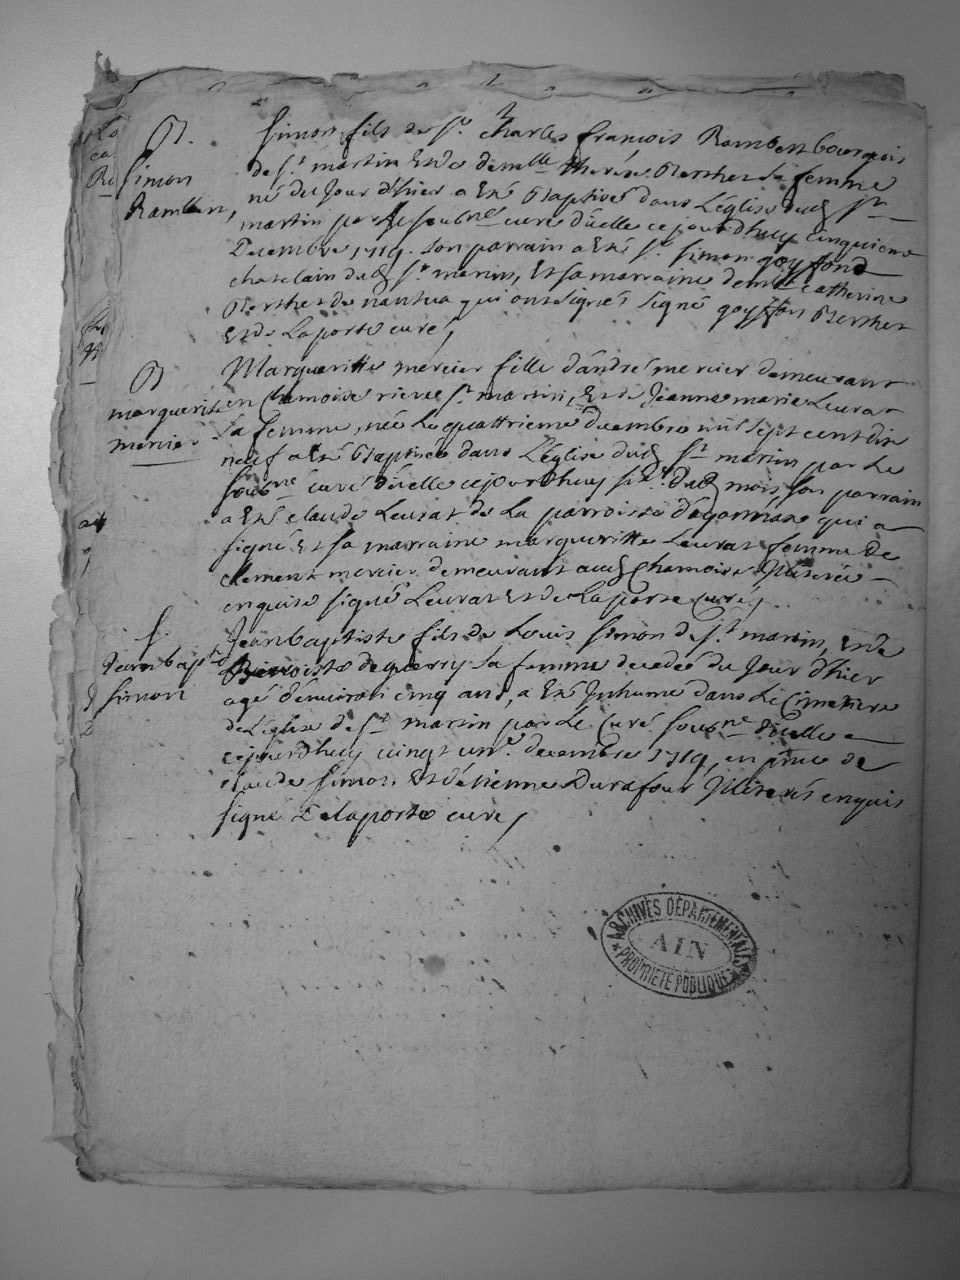 B.
Simon
Rambert,
Simon fils de Sr. Charles françois Rambert bourgeois
de St. martin Et de demlle therése Berthet sa femme
né du jour d'hier a Eté Baptisé dans L'église dud St
martin par le soubné curé d'icelle ce jourdhuy Cinquieme
Decembre 1719. son parrain a Eté Sr. Simon goyffond
chatelain dud St martin, Et sa marraine demlle Catherine
Berthet de nantua qui ont signés signé goyffon Berthet
Et De Laporte curé
B
margueritte
mercier
Margueritte mercier fille d'andré mercier demeurant
en Chamoise riere St martin, Et de Jeanne marie Leurat
sa femme, née Le quattrieme decembre mil sept cent dix
neuf a Eté Baptisée dans L'église dud St martin par Le
soubné curé d'icelle ce jourdhuy dud mois, son parrain
a Eté claude Leurat de La parroisse d'
qui a
signé Et sa marraine margueritte Leurat femme de
clement mercier demeurant aud Chamoise Illiterée
enquise signé Leurat Et De Laporte Curé
S.
Jean bapte
Simon
Jean baptiste fils de Louis Simon de St martin, et de
Benoiste de querry sa femme decedé du jour d'hier
agé d'environ cinq ans, a Eté Inhumé dans Le Cimetiere
de L'église de St martin par Le Curé soubné d'icelle
ce jourdhuy vingt une. decembre 1719, en pnce de
claude Simon Et d'étienne Durafour Illiterés enquis
signé Delaporte curé
ARCHIVES DÉPARTEMENTALES
AIN
PROPRIÉTÉ PUBLIQUE